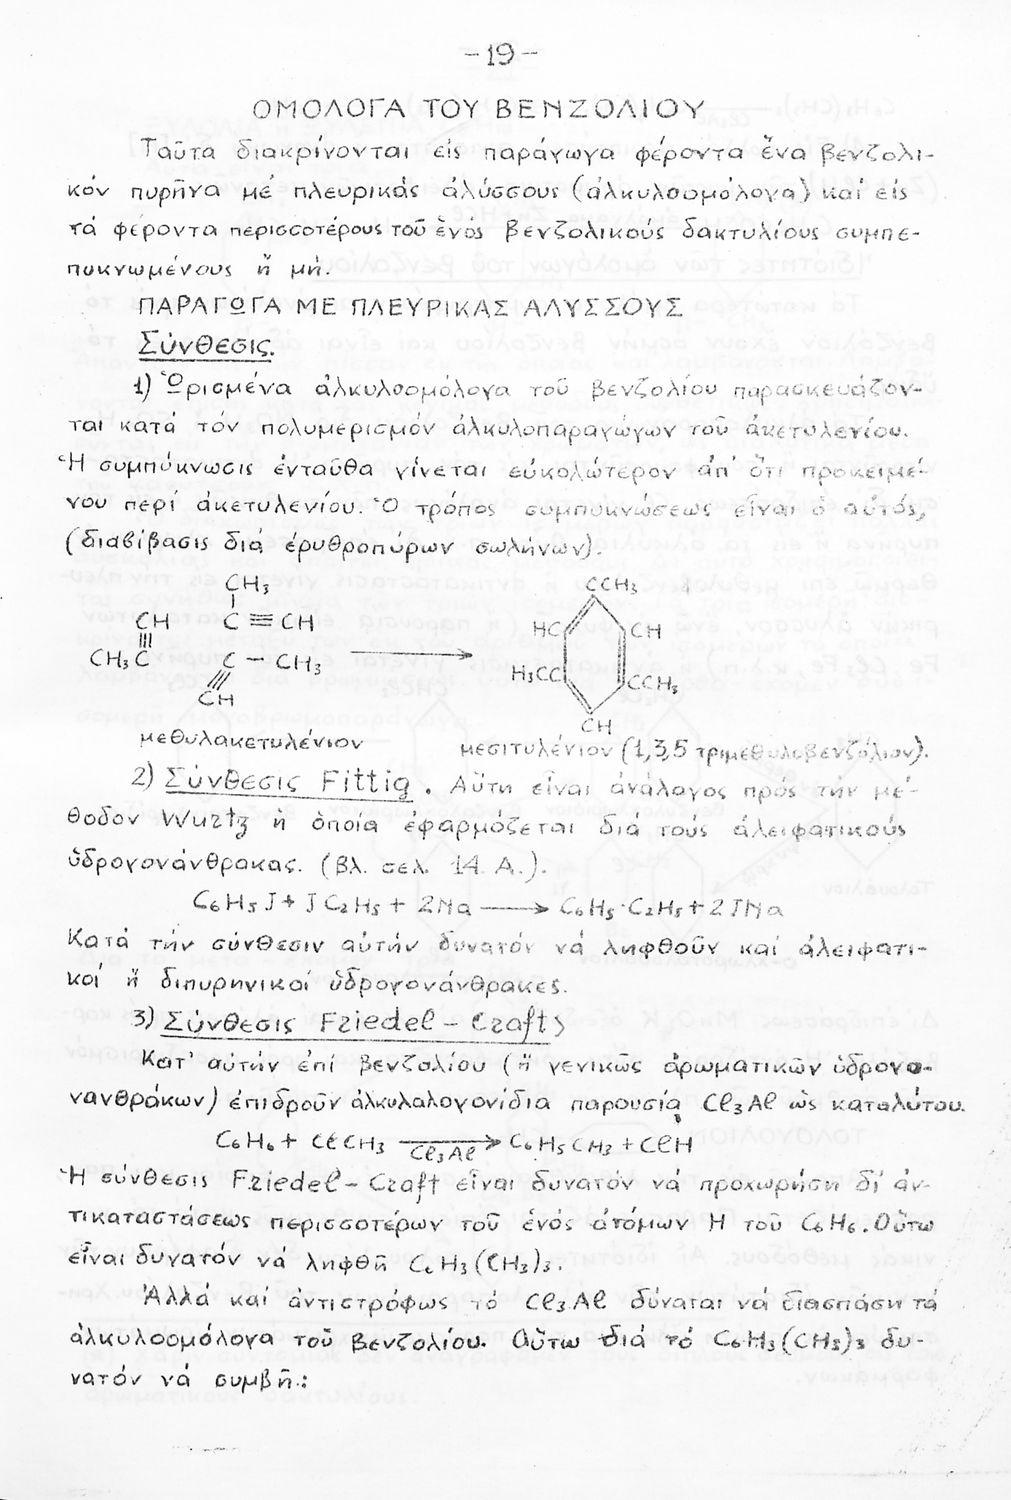 -19-
ΟΜΟΛΟΓΑ ΤΟΥ ΒΕΝΖΟΛΙΟΥ
Ταῦτα διακρίνονται εἰς παράγωγα φέροντα ἕνα βενζολι-
κόν πυρῆνα μέ πλευρικάς ἁλύσσους (ἀλκυλοομόλογα) καί εἰς
τά φέροντα περισσοτέρους τοῦ ἑνός βενζολικούς δακτυλίους συμπε-
πυκνωμένους ἤ μή.
ΠΑΡΑΓΩΓΑ ΜΕ ΠΛΕΥΡΙΚΑΣ ΑΛΥΣΣΟΥΣ
Σύνθεσις.
1) Ὡρισμένα ἀλκυλοομόλογα τοῦ βενζολίου παρασκευάζον-
ται κατά τόν πολυμερισμόν ἀλκυλοπαραγώγων τοῦ ἀκετυλενίου.
Ἡ συμπύκνωσις ἐνταῦθα γίνεται εὐκολώτερον ἀπ' ὅτι προκειμέ-
νου περί ἀκετυλενίου. Ὁ τρόπος συμπυκνώσεως εἶναι ὁ αὐτός,
(διαβίβασις διά ἐρυθροπύρων σωλήνων).
CH₃ CCH₃
CH C≡CH HC CH
CH₃C C-CH₃ H₃CC CCH₃
CH CH
μεθυλακετυλένιον μεσιτυλένιον (1,3,5 τριμεθυλοβενζόλιον).
2) Σύνθεσις Fittig. Αὕτη εἶναι ἀνάλογος πρός τήν μέ-
θοδον Wurtz ἡ ὁποία ἐφαρμόζεται διά τούς ἀλειφατικούς
ὑδρογονάνθρακας. (βλ. σελ. 14 Α.).
C₆H₅J + JC₂H₅ + 2Na → C₆H₅·C₂H₅ + 2JNa
Κατά τήν σύνθεσιν αὐτήν δυνατόν νά ληφθοῦν καί ἀλειφατι-
κοί ἤ διπυρηνικοί ὑδρογονάνθρακες.
3) Σύνθεσις Friedel - Crafts
Κατ' αὐτήν ἐπί βενζολίου (ἤ γενικῶς ἀρωματικῶν ὑδρογο-
νανθράκων) ἐπιδροῦν ἀλκυλαλογονίδια παρουσίᾳ Cl₃Al ὡς καταλύτου.
C₆H₆ + ClCH₃ →Cl₃Al C₆H₅CH₃ + ClH
Ἡ σύνθεσις Friedel - Craft εἶναι δυνατόν νά προχωρήση δι' ἀν-
τικαταστάσεως περισσοτέρων τοῦ ἑνός ἀτόμων H τοῦ C₆H₆. Οὕτω
εἶναι δυνατόν νά ληφθῆ C₆H₃(CH₃)₃.
Ἀλλά καί ἀντιστρόφως τό Cl₃Al δύναται νά διασπάση τά
ἀλκυλοομόλογα τοῦ βενζολίου. Οὕτω διά τό C₆H₃(CH₃)₃ δυ-
νατόν νά συμβῆ.: